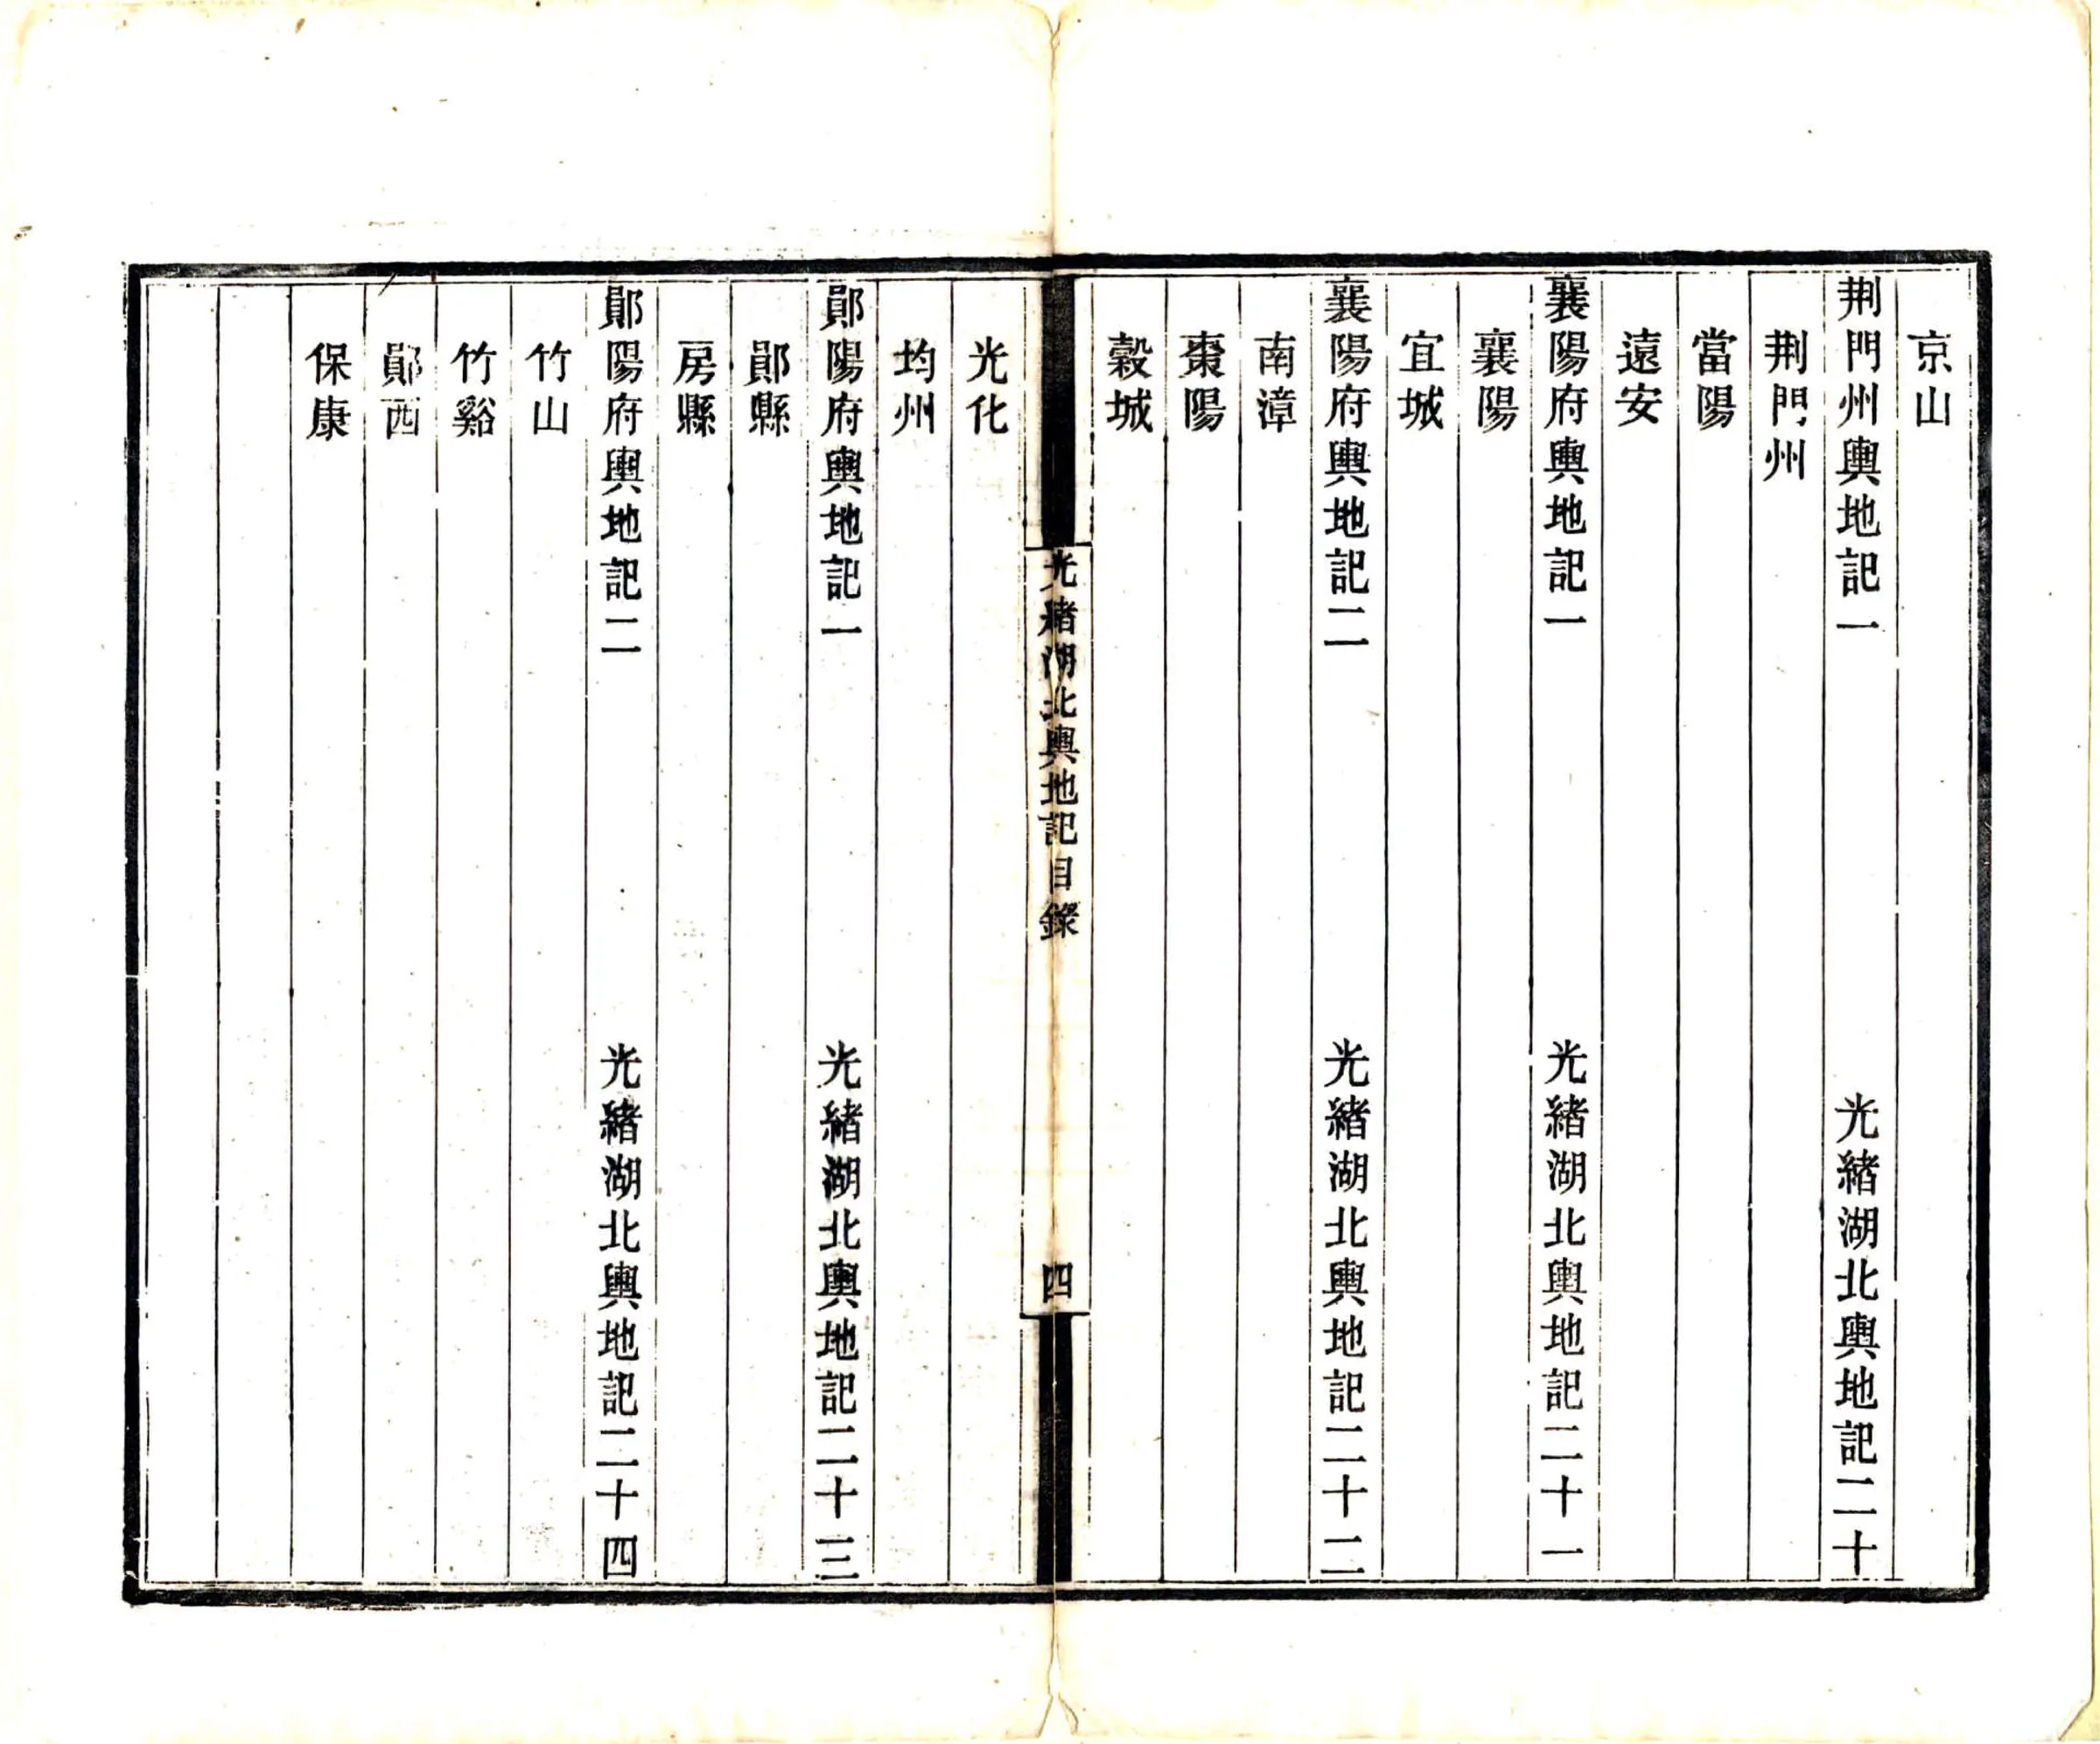 京山
荆門州輿地記一　光緒湖北輿地記二十
荆門州
當陽
遠安
襄陽府輿地記一　光緒湖北輿地記二十一
襄陽
宜城
襄陽府輿地記二　光緒湖北輿地記二十二
南漳
棗陽
穀城
光緒湖北輿地記目錄　四
光化
均州
鄖陽府輿地記一　光緒湖北輿地記二十三
鄖縣
房縣
鄖陽府輿地記二　光緒湖北輿地記二十四
竹山
竹谿
鄖西
保康